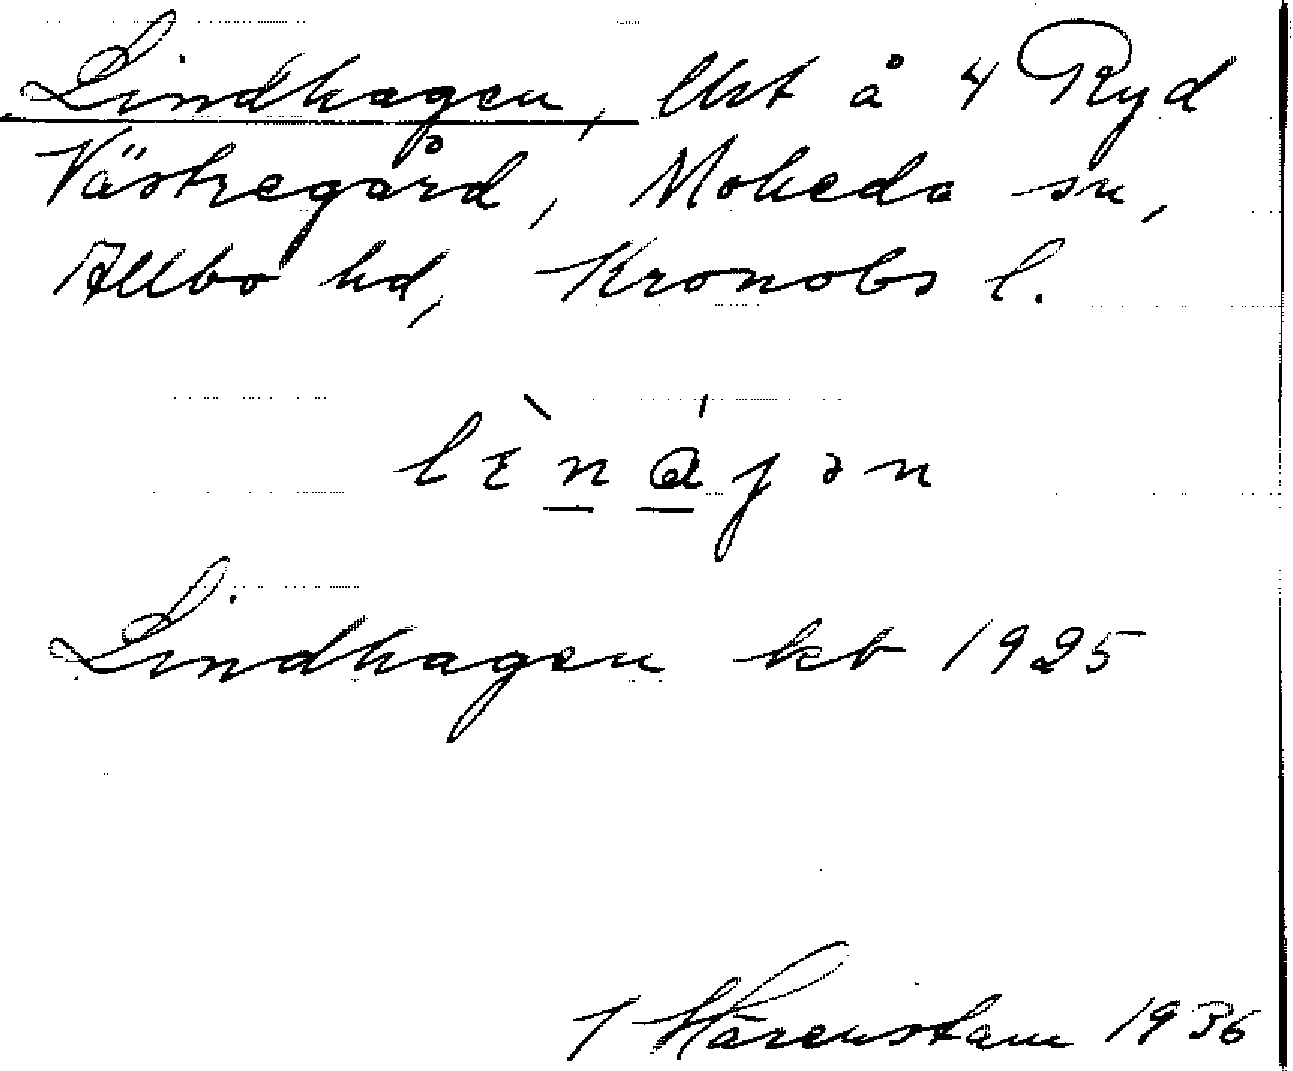 Lindhagen, lht å 4 Ryd
Västregård, Moheda sn,
Allbo hd, Kronobs l.
lènájən
Lindhagen kb 1925
J Härenstam 1936